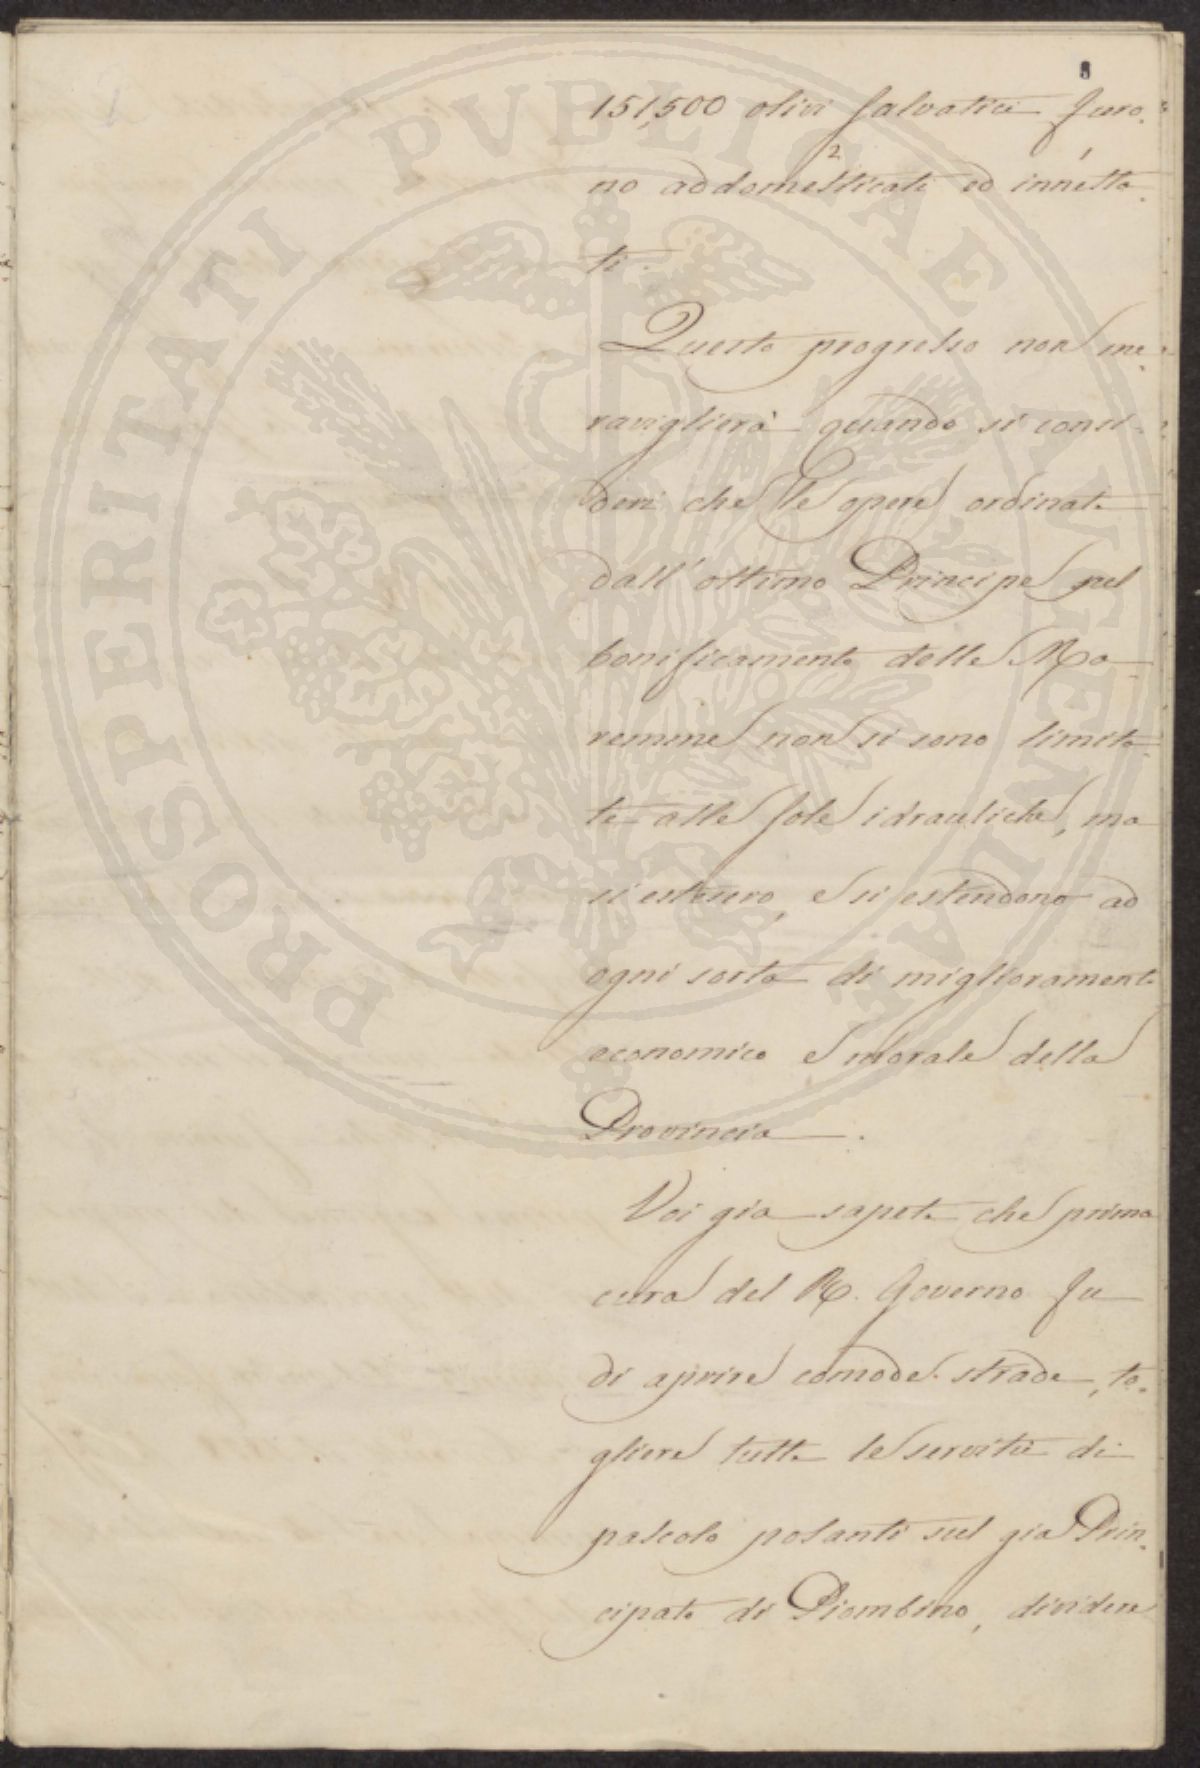 8
151,500 olivi salvatici furo-
no addomesticati ed innesta-
2 1
ti.
Questo progresso non me-
raviglierà quando si consi-
deri che le opere ordinate
dall' ottimo Principe nel
bonificamento delle Ma-
remme non si sono limita-
te alle sole idrauliche, ma
si estesero, e si estendono ad
ogni sorta di miglioramento
economico e morale della
Provincia.
Voi già sapete che prima
cura del R. Governo fu
di aprire comode strade, to-
gliere tutte le servitù di
pascolo posanti sul già Prin-
cipato di Piombino, dividere
PROSPERITATI PVBLICAE AVGENDAE